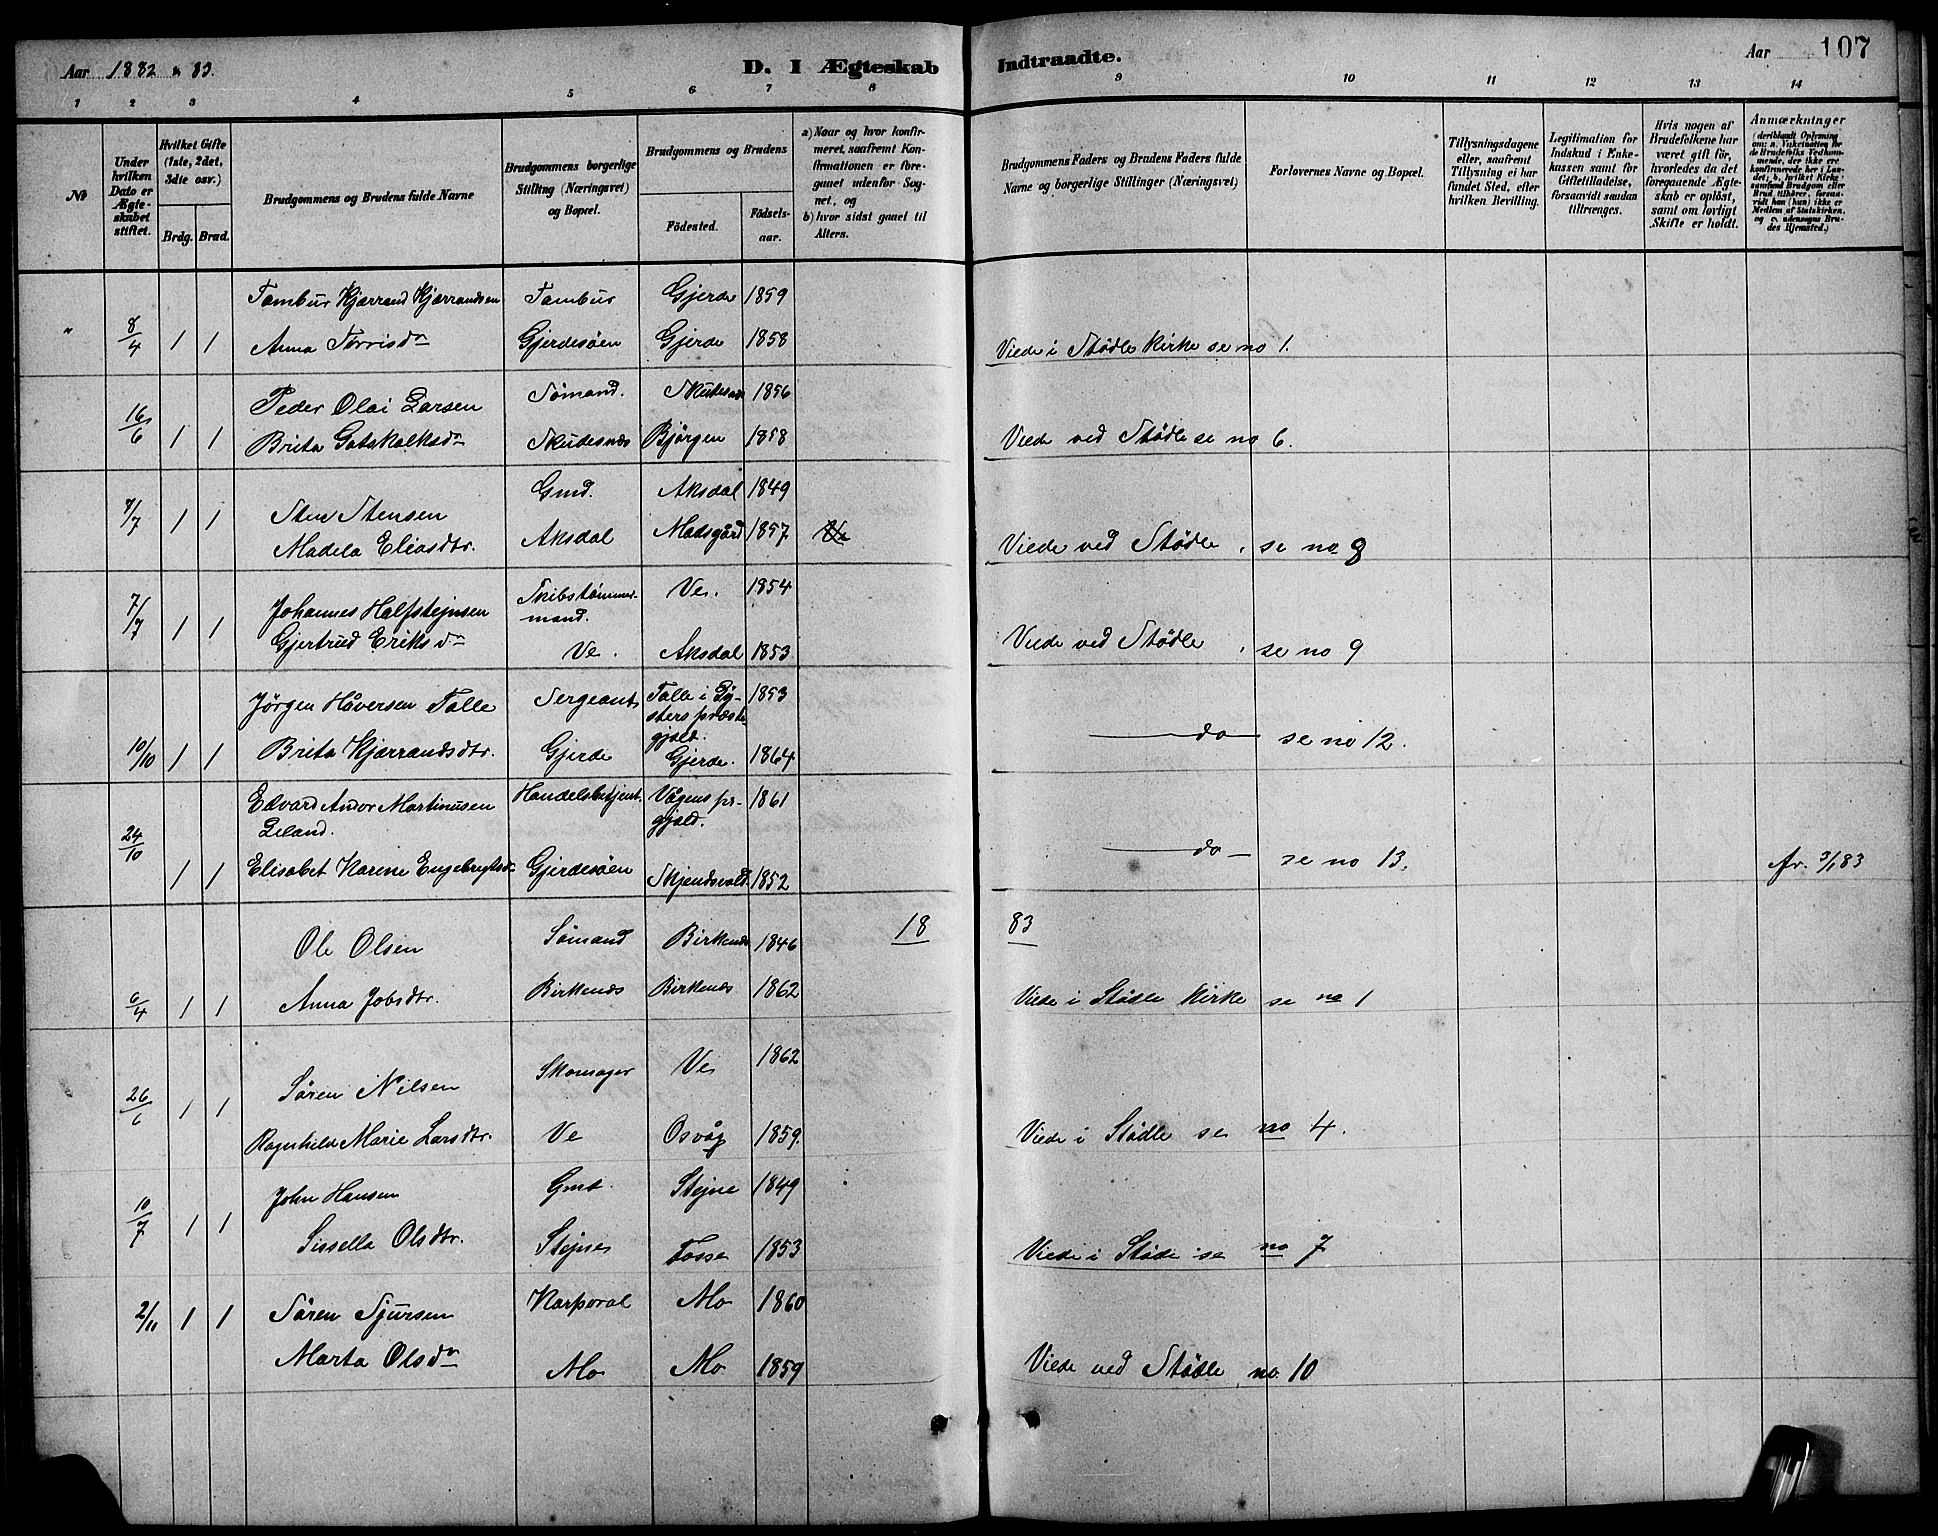 Aar 1882 & 83.
D. I Ægteskab Indtraadte.
Aar 107
1 2 3 4 5 6 7 8 9 10 11 12 13 14
№
Under hvilken Dato er Ægteskabet stiftet.
Hvilket Gifte (1ste, 2det, 3die osv.)
Brdg. Brud.
Brudgommens og Brudens fulde Navne
Brudgommens borgerlige Stilling (Næringsvei) og Bopæl.
Brudgommens og Brudens
Fødested. Fødselsaar.
a) Naar og hvor konfirmeret, saafremt Konfirmationen er foregaaet udenfor Sognet, og
b) hvor sidst gaaet til Alters.
Brudgommens Faders og Brudens Faders fulde Navne og borgerlige Stillinger (Næringsvei)
Forlovernes Navne og Bopæl.
Tillysningsdagene eller, saafremt Tillysning ei har fundet Sted, efter hvilken Bevilling.
Legitimation for Indskud i Enkekassen samt for Giftetilladelse, forsaavidt saadan tiltrænges.
Hvis nogen af Brudefolkene har været gift før, hvorledes da det foregaaende Ægteskab er opløst, samt om lovligt Skifte er holdt.
Anmærkninger
(deriblandt Oplysning om: a. Vakcination for de Brudefolks Vedkommende, der ikke ere konfirmerede her i Landet; b. hvilket Kirkesamfund Brudgom eller Brud tilhører, forsaavidt han (hun) ikke er Medlem af Statskirken, og c. udensogns Brudes Hjemsted.)
Tambur Kjærrand Kjærrandsen Tambur Gjerde 1859
" 8/4 1 1 Anna Torrisdr Gjerdesøen Gjerde 1858 Viede i Stødle Kirke se no 1.
Peder Olai Larsen Sømand. Skudesnæs 1856
16/6 1 1 Brita Gotskalksdr Skudesnæs Bjørgen 1858 Viede ved Stødle se no 6.
Gmd. Aksdal 1849
7/7 1 1 Sten Stensen
Madela Eliasdtr. Aksdal Madsgård 1857 Viede ved Stødle, se no 8
7/7 1 1 Johannes Halfstejnsen Skibstømmermand. Ve. 1854
Gjertrud Eriksdr Ve. Aksdal 1853 Viede ved Stødle, se no 9
Jørgen Håversen Talle Sergeant Talle i Lysters præstegjald. 1853
10/10 1 1 Brita Kjærrandsdtr. Gjerde Gjerde. 1864 do se no 12.
Edvard Andor Martinusen Handelsbetjent. Vågens prgjald. 1861
24/10 Leland.
1 1 Elisabet Karine Engebrigtsdr Gjerdesøen Skjensvold 1852 do se no 13. fr. 3/1 83
1883
Ole Olsen Sømand Birkenæs 1846
6/4 1 1 Anna Jobsdtr. Birkenæs Birkenæs 1862 Viede i Stødle Kirke se no 1
Søren Nilsen Skomager Ve 1862
26/6 1 1
Ragnhild Marie Larsdtr. Ve Osvåg 1859. Viede i Stødle se no 4.
John Hansen Gmd. Stejne 1849
10/7 1 1 Sissella Olsdtr. Stejne Fosse 1853 Viede i Stødle se no 7
2/11 1 1 Søren Sjursen Korporal Mo 1860
Marta Olsdr Mo Mo 1859 Viede ved Stødle, no. 10